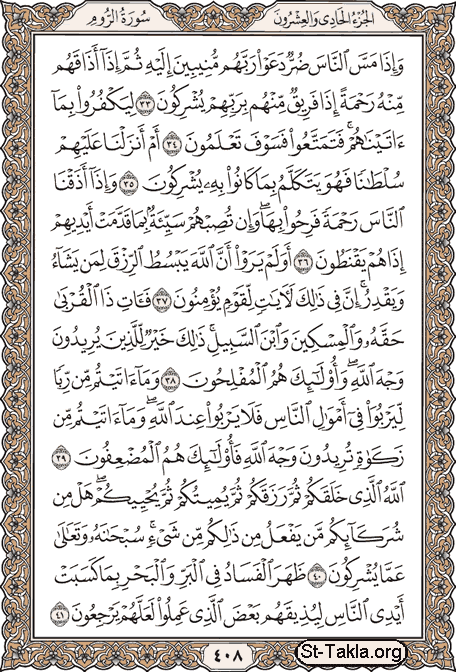 الجزء الحادى والعشرون
سورة الروم
وَإِذَا مَسَّ ٱلنَّاسَ ضُرٌّ دَعَوْا۟ رَبَّهُم مُّنِيبِينَ إِلَيْهِ ثُمَّ إِذَآ أَذَاقَهُم
مِّنْهُ رَحْمَةً إِذَا فَرِيقٌ مِّنْهُم بِرَبِّهِمْ يُشْرِكُونَ ٣٣ لِيَكْفُرُوا۟ بِمَآ
ءَاتَيْنَٰهُمْ ۚ فَتَمَتَّعُوا۟ فَسَوْفَ تَعْلَمُونَ ٣٤ أَمْ أَنزَلْنَا عَلَيْهِمْ
سُلْطَٰنًا فَهُوَ يَتَكَلَّمُ بِمَا كَانُوا۟ بِهِۦ يُشْرِكُونَ ٣٥ وَإِذَآ أَذَقْنَا
ٱلنَّاسَ رَحْمَةً فَرِحُوا۟ بِهَا ۖ وَإِن تُصِبْهُمْ سَيِّئَةٌۢ بِمَا قَدَّمَتْ أَيْدِيهِمْ
إِذَا هُمْ يَقْنَطُونَ ٣٦ أَوَلَمْ يَرَوْا۟ أَنَّ ٱللَّهَ يَبْسُطُ ٱلرِّزْقَ لِمَن يَشَآءُ
وَيَقْدِرُ ۚ إِنَّ فِى ذَٰلِكَ لَءَايَٰتٍ لِّقَوْمٍ يُؤْمِنُونَ ٣٧ فَـَٔاتِ ذَا ٱلْقُرْبَىٰ
حَقَّهُۥ وَٱلْمِسْكِينَ وَٱبْنَ ٱلسَّبِيلِ ۚ ذَٰلِكَ خَيْرٌ لِّلَّذِينَ يُرِيدُونَ
وَجْهَ ٱللَّهِ ۖ وَأُو۟لَٰٓئِكَ هُمُ ٱلْمُفْلِحُونَ ٣٨ وَمَآ ءَاتَيْتُم مِّن رِّبًا
لِّيَرْبُوَا۟ فِىٓ أَمْوَٰلِ ٱلنَّاسِ فَلَا يَرْبُوا۟ عِندَ ٱللَّهِ ۖ وَمَآ ءَاتَيْتُم مِّن
زَكَوٰةٍ تُرِيدُونَ وَجْهَ ٱللَّهِ فَأُو۟لَٰٓئِكَ هُمُ ٱلْمُضْعِفُونَ ٣٩
ٱللَّهُ ٱلَّذِى خَلَقَكُمْ ثُمَّ رَزَقَكُمْ ثُمَّ يُمِيتُكُمْ ثُمَّ يُحْيِيكُمْ ۖ هَلْ مِن
شُرَكَآئِكُم مَّن يَفْعَلُ مِن ذَٰلِكُم مِّن شَىْءٍ ۚ سُبْحَٰنَهُۥ وَتَعَٰلَىٰ
عَمَّا يُشْرِكُونَ ٤٠ ظَهَرَ ٱلْفَسَادُ فِى ٱلْبَرِّ وَٱلْبَحْرِ بِمَا كَسَبَتْ
أَيْدِى ٱلنَّاسِ لِيُذِيقَهُم بَعْضَ ٱلَّذِى عَمِلُوا۟ لَعَلَّهُمْ يَرْجِعُونَ ٤١
٤٠٨
St-Takla.org